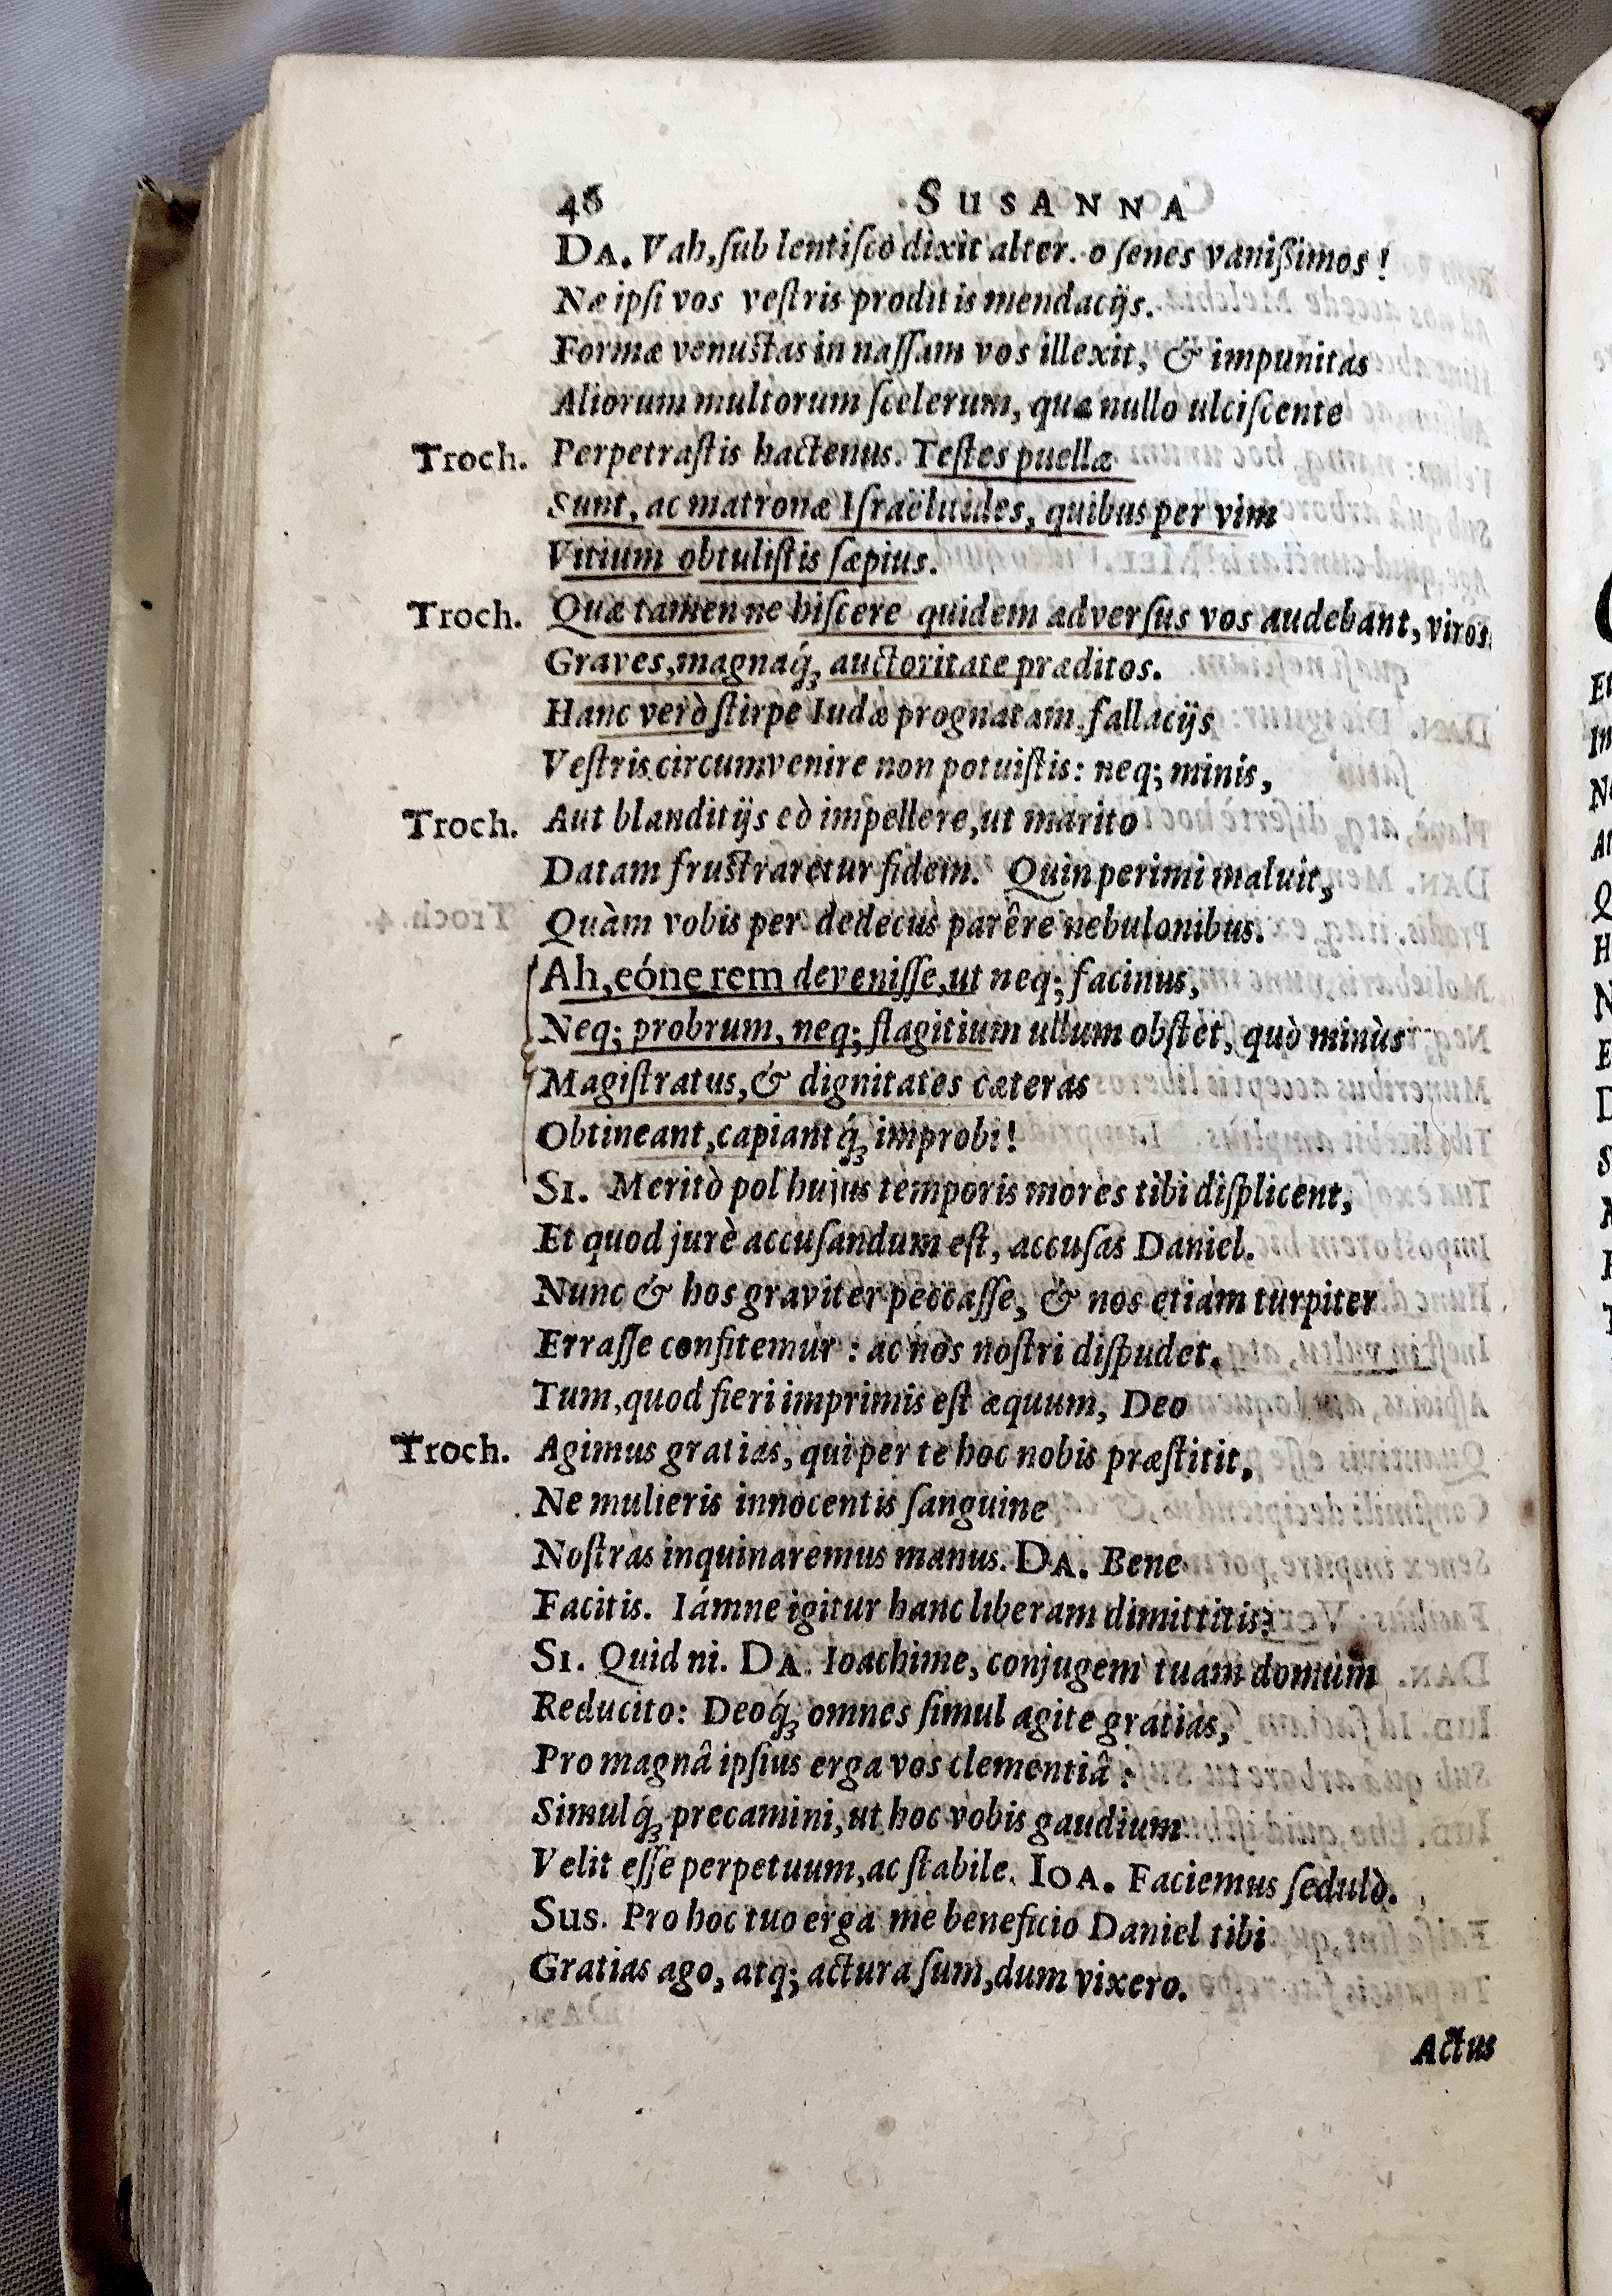 46 SUSANNA
DA. Vah, ſub lentiſco dixit alter. o ſenes vanißimos!
Næ ipſi vos veſtris proditis mendacijs.
Formæ venuſtas in naſſam vos illexit, & impunitas
Aliorum multorum ſcelerum, quæ nullo ulciſcente
Troch. Perpetraſtis hactenus. Teſtes puellæ
Sunt, ac matronæ Iſraëlitides, quibus per vim
Vitium obtuliſtis ſæpius.
Troch. Quæ tamen ne hiſcere quidem adverſus vos audebant, viros
Graves, magnaq́ꝫ auctoritate præditos.
Hanc verò ſtirpe Iudæ prognatam fallacijs
Veſtris circumvenire non potuiſtis: neq; minis,
Troch. Aut blanditijs eò impellere, ut marito
Datam fruſtraretur fidem. Quin perimi maluit,
Quàm vobis per dedecus parêre nebulonibus.
Ah, eóne rem deveniſſe, ut neq; facinus,
Neq; probrum, neq; flagitium ullum obſtet, quò minùs
Magiſtratus, & dignitates cæteras
Obtineant, capiantq́ꝫ improbi!
SI. Meritò pol hujus temporis mores tibi diſplicent,
Et quod jurè accuſandum eſt, accuſas Daniel.
Nunc & hos graviter peccaſſe, & nos etiam turpiter
Erraſſe confitemur: ac nos noſtri diſpudet.
Tum, quod fieri imprimis eſt æquum, Deo
Troch. Agimus gratias, qui per te hoc nobis præſtitit,
Ne mulieris innocentis ſanguine
Noſtras inquinaremus manus. DA. Bene
Facitis. Iámne igitur hanc liberam dimittitis?
SI. Quid ni. DA. Ioachime, conjugem tuam domum
Reducito: Deoq́ꝫ omnes ſimul agite gratias,
Pro magnâ ipſius erga vos clementiâ:
Simulq́ꝫ precamini, ut hoc vobis gaudium
Velit eſſe perpetuum, ac ſtabile. IOA. Faciemus ſedulò.
SUS. Pro hoc tuo erga me beneficio Daniel tibi
Gratias ago, atq; actura ſum, dum vixero.
Actus